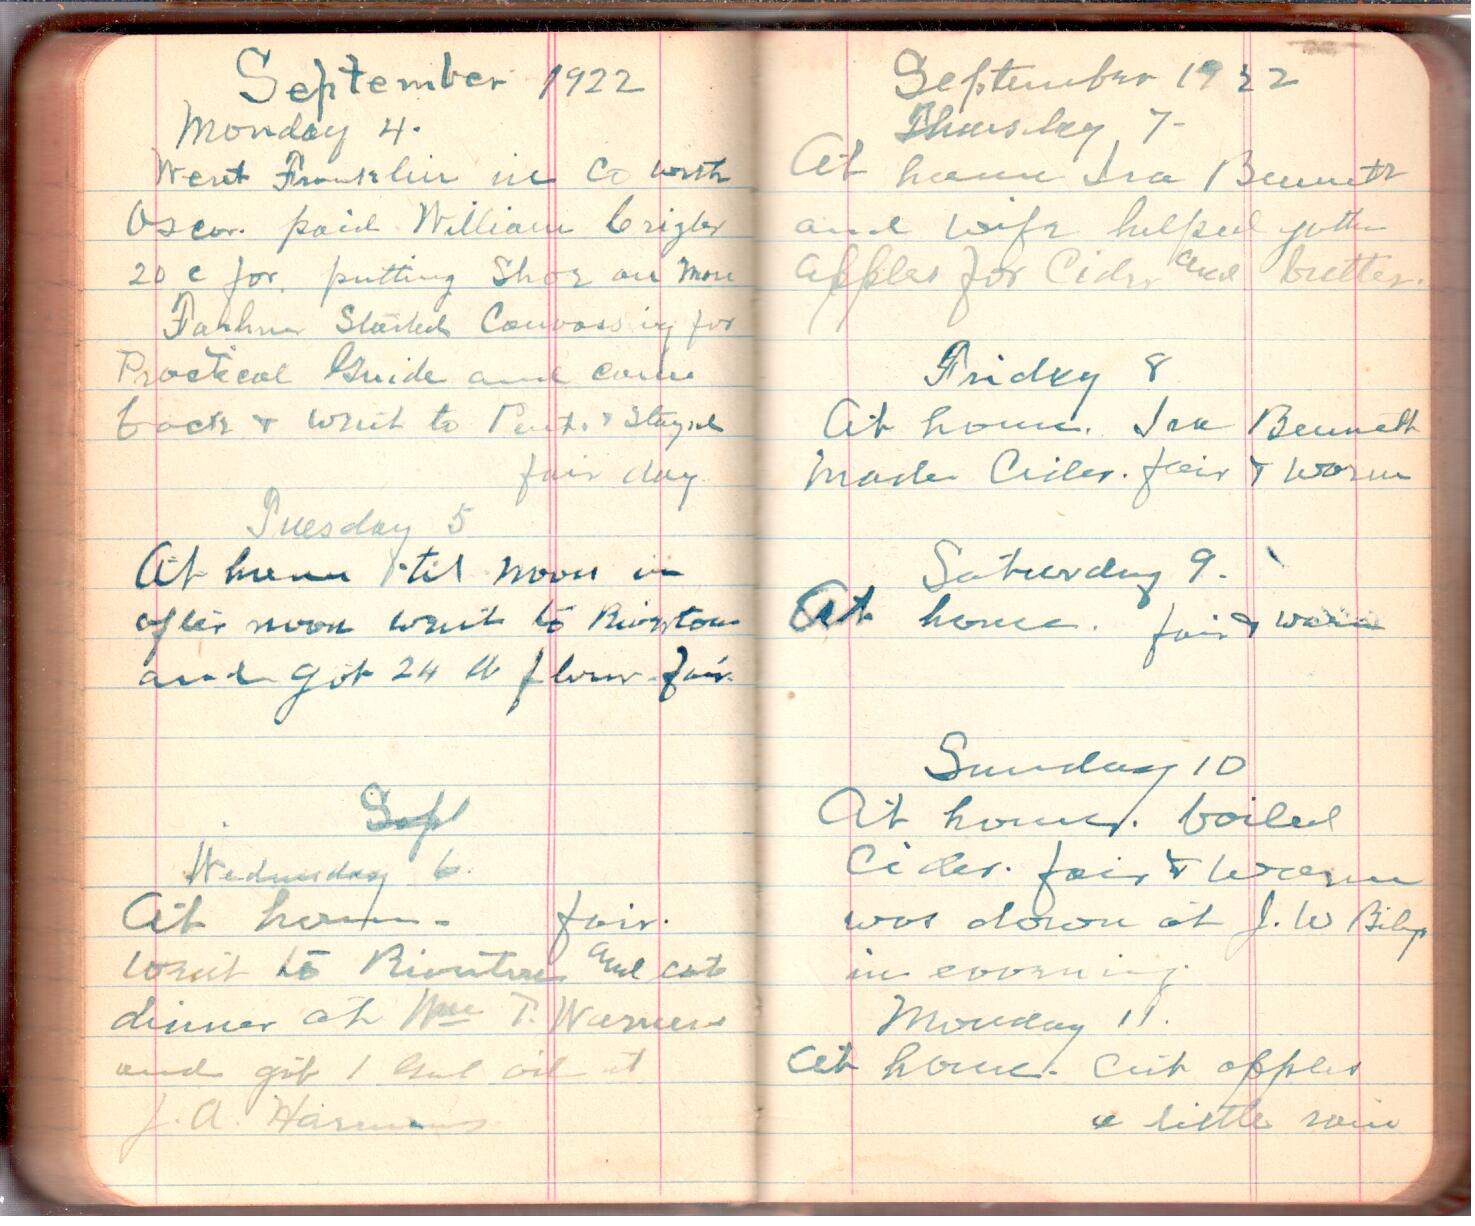 September 1922
Monday 4.
Went Franklin in Co with
Oscar. paid William Crigler
20 c for putting Shoe on Mare
Started Canvassing for
Practical Guide and come
back & went to & Stayed
fair day
Tuesday 5
At home 'til noon in
after noon went to Rivertown
and got 24 lb flour. fair.
Sept
Wednesday 6.
At home. fair.
went to and eat
dinner at Wm T. Warrens
and got 1 Gal oil at
J. A. Harmans
September 1922
Thursday 7-
At home Ira Bennett
and wife helped gather
Apples for Cider and butter.
Friday 8
At home. Ira Bennett
Made Cider. fair & Warm
Saturday 9.
At home. fair & warm
Sunday 10
At home. boiled
Cider. fair & Warm
was down at J. W
in evening.
Monday 11.
At home. Cut apples
a little rain